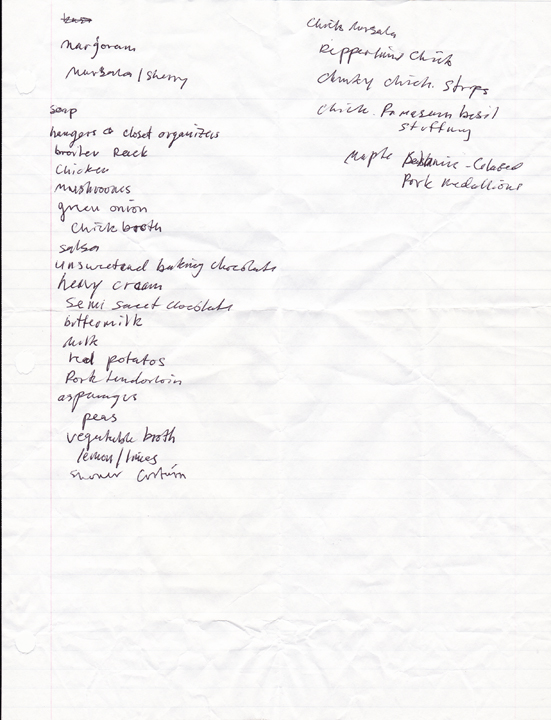 marjoram
Marsala / sherry
soap
hangers & closet organizers
broiler Rack
Chicken
mushrooms
green onion
Chick broth
salsa
unsweetend baking chocolate
heavy cream
Semi sweet chocolate
buttermilk
milk
red potatos
Pork tenderloin
asparagus
peas
vegetable broth
lemon / limes
shower curtain
Chick Marsala
Chick
chunky chick. strips
Chick. Parmesan basil
stuffing
Maple Balsamic-Glazed
Pork medallions